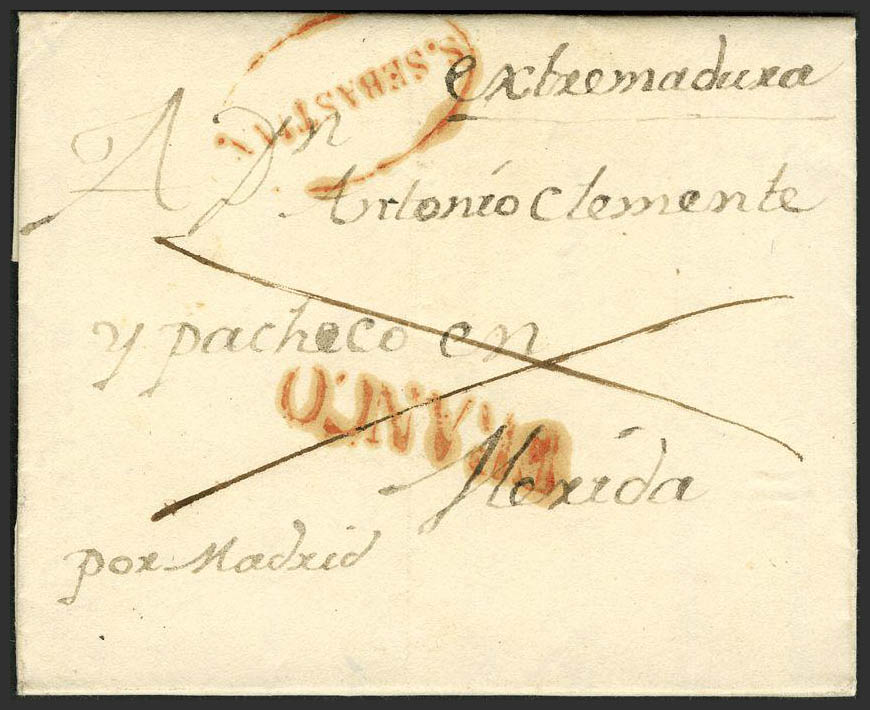 S. SEBASTIAN.
extremadura
A Dn
Antonio Clemente
y pacheco en
FRANCO
Merida
por Madrid